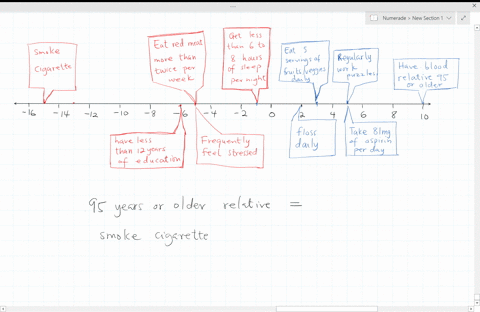 Numerade > New Section 1
Smoke
Cigarette
Eat red meat
more than
twice per
week
Get less
than 6 to
8 hours
of sleep
per night
Eat 5
servings of
fruits/veggies
daily
Regularly
work
puzzles
Have blood
relative 95
or older
-16 -14 -12 -10 -8 -6 -4 -2 0 2 4 6 8 10
have less
than 12 years
of education
Frequently
feel stressed
floss
daily
Take 81mg
of aspirin
per day
95 years or older relative =
smoke cigarette